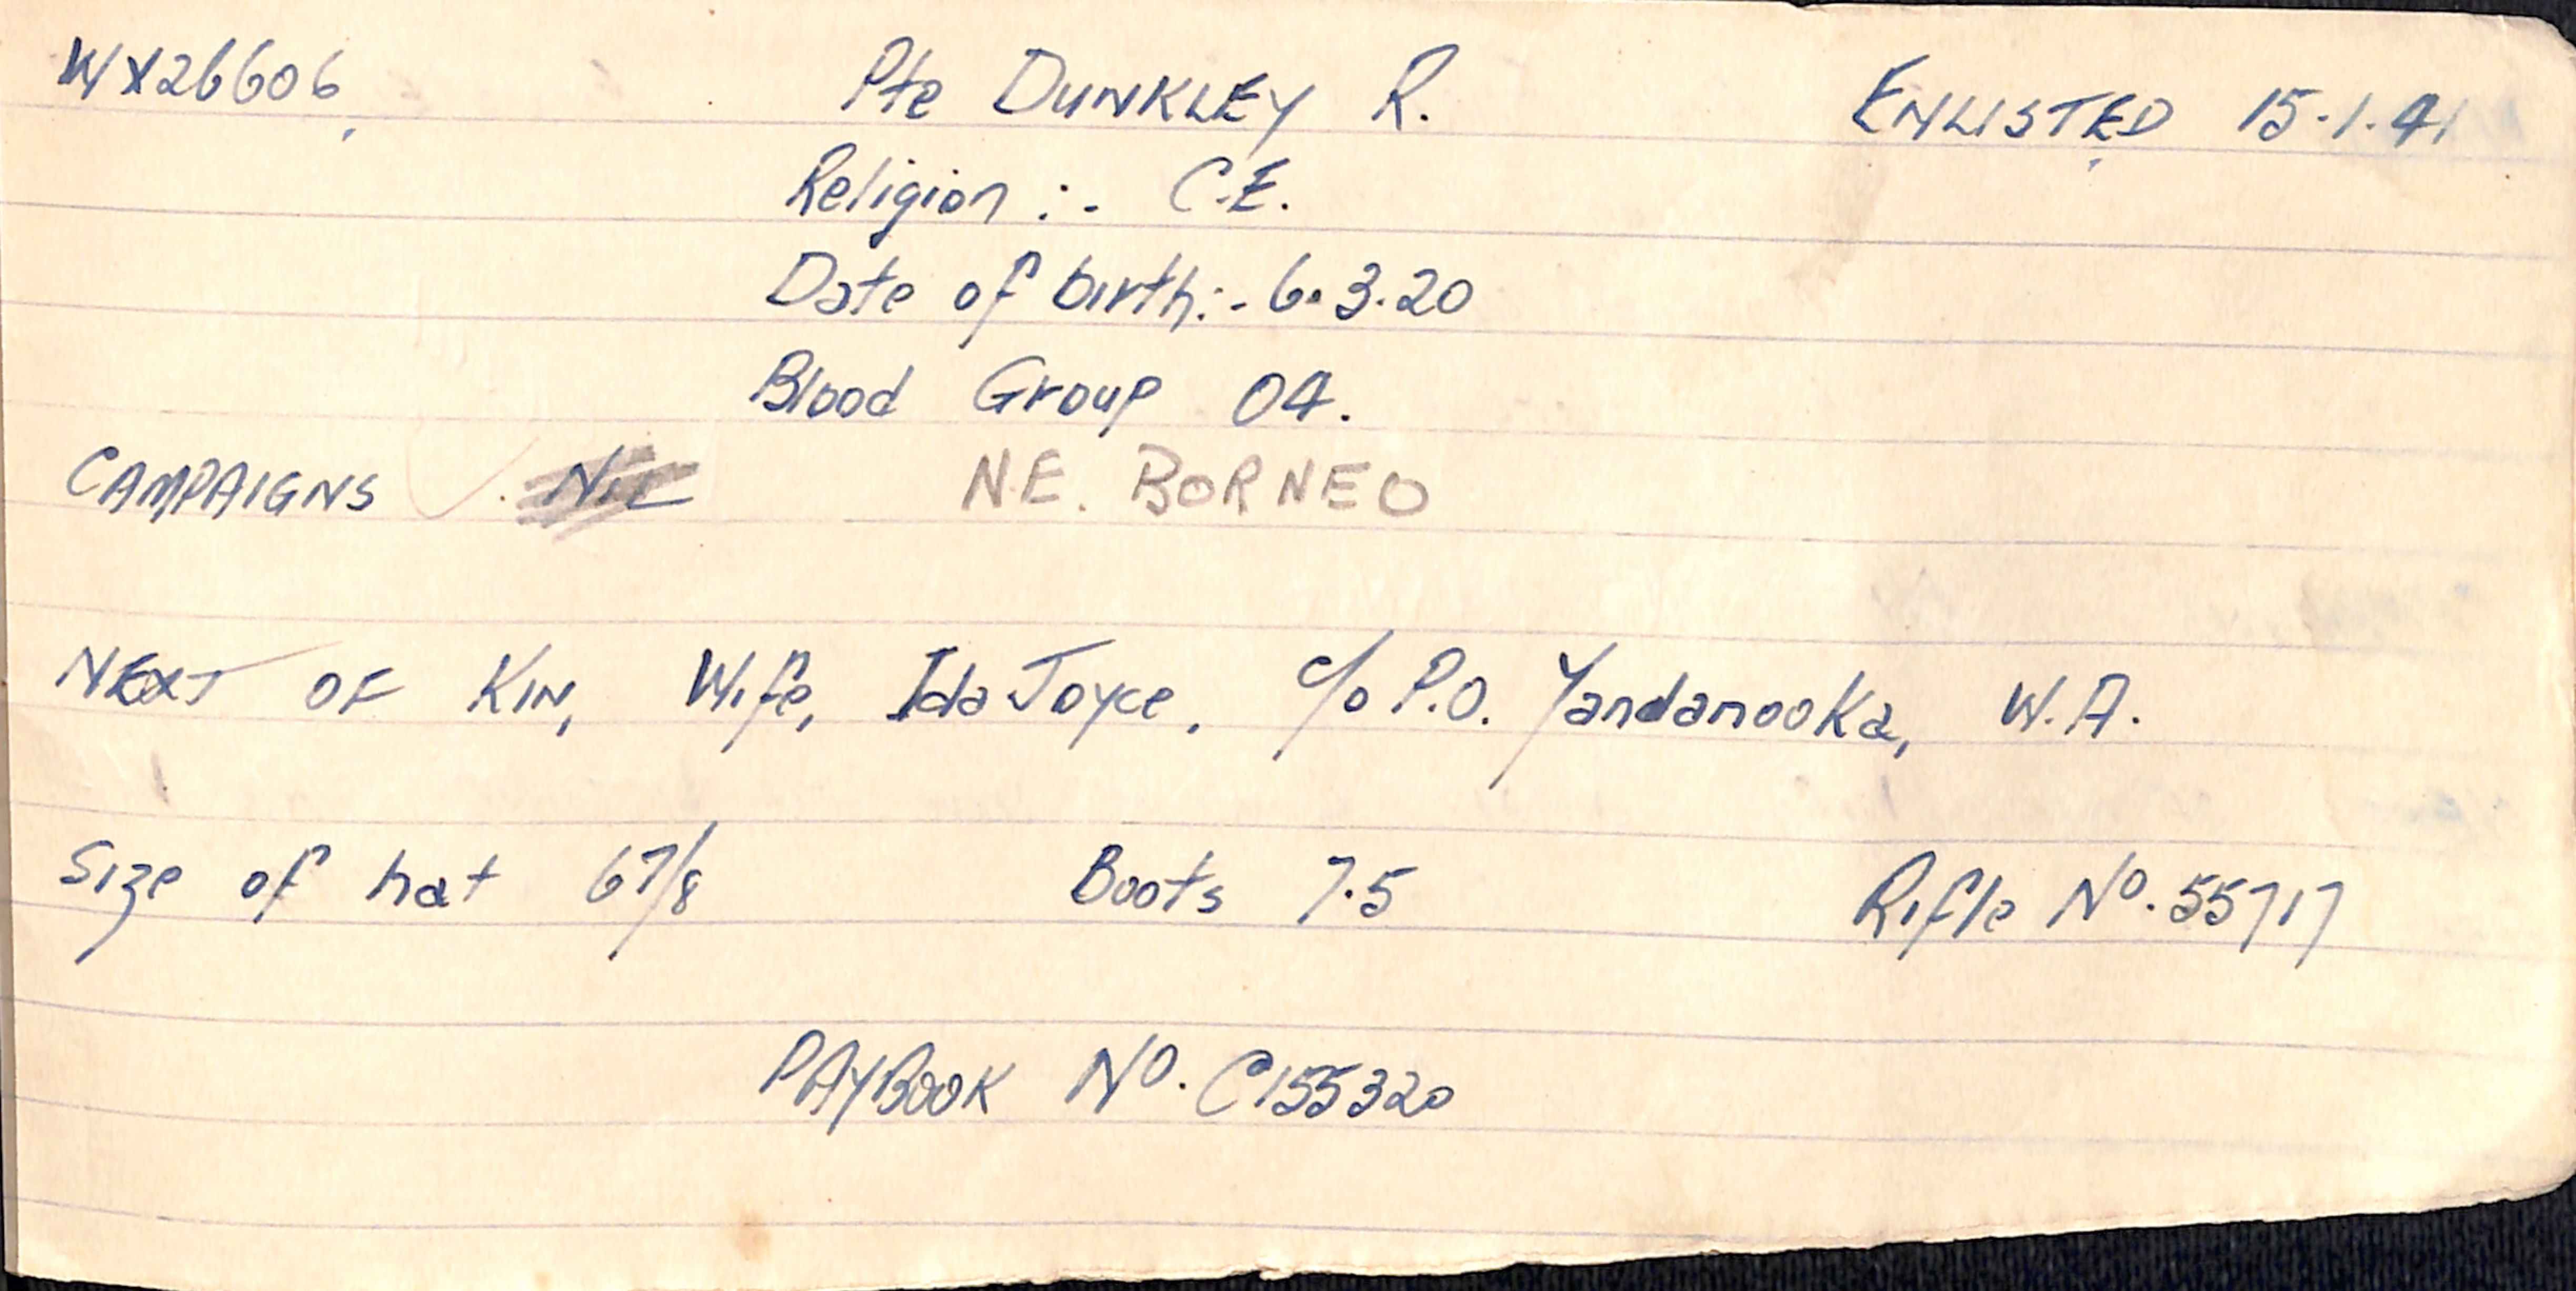 WX26606 Pte DUNKLEY R. ENLISTED 15.1.41
Religion :- C.E.
Date of birth:- 6.3.20
Blood Group O4.
CAMPAIGNS NIL N.E. BORNEO
NEXT OF KIN, Wife, Ida Joyce, c/o P.O. Yandanooka, W.A.
Size of hat 6 7/8 Boots 7.5 Rifle No. 55717
PAYBOOK No. C155320